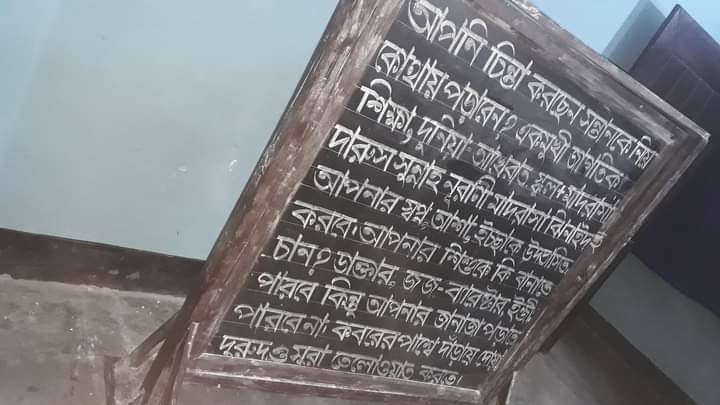 আপনি চিন্তা করছেন সন্তানকে নিয়ে
কোথায় পড়াবেন? একমুখী জাগতিক
শিক্ষা, দুনিয়া-আখেরাত, স্কুল+মাদরাসা
দারুস সুন্নাহ নূরানী মাদরাসা ঝিনাইদহ
আপনার স্বপ্ন, আশা, ইচ্ছাকে উদ্ভাসিত
করবে। আপনার শিশুকে কি বানাতে
চান? ডাক্তার, জজ-ব্যারিষ্টার,
পারবে কিন্তু আপনার জানাজা পড়াতে
পারবেনা। কবরের পার্শ্বে দাঁড়ায়ে দোয়া
দুরুদ ও সূরা তেলোওয়াত করতে।